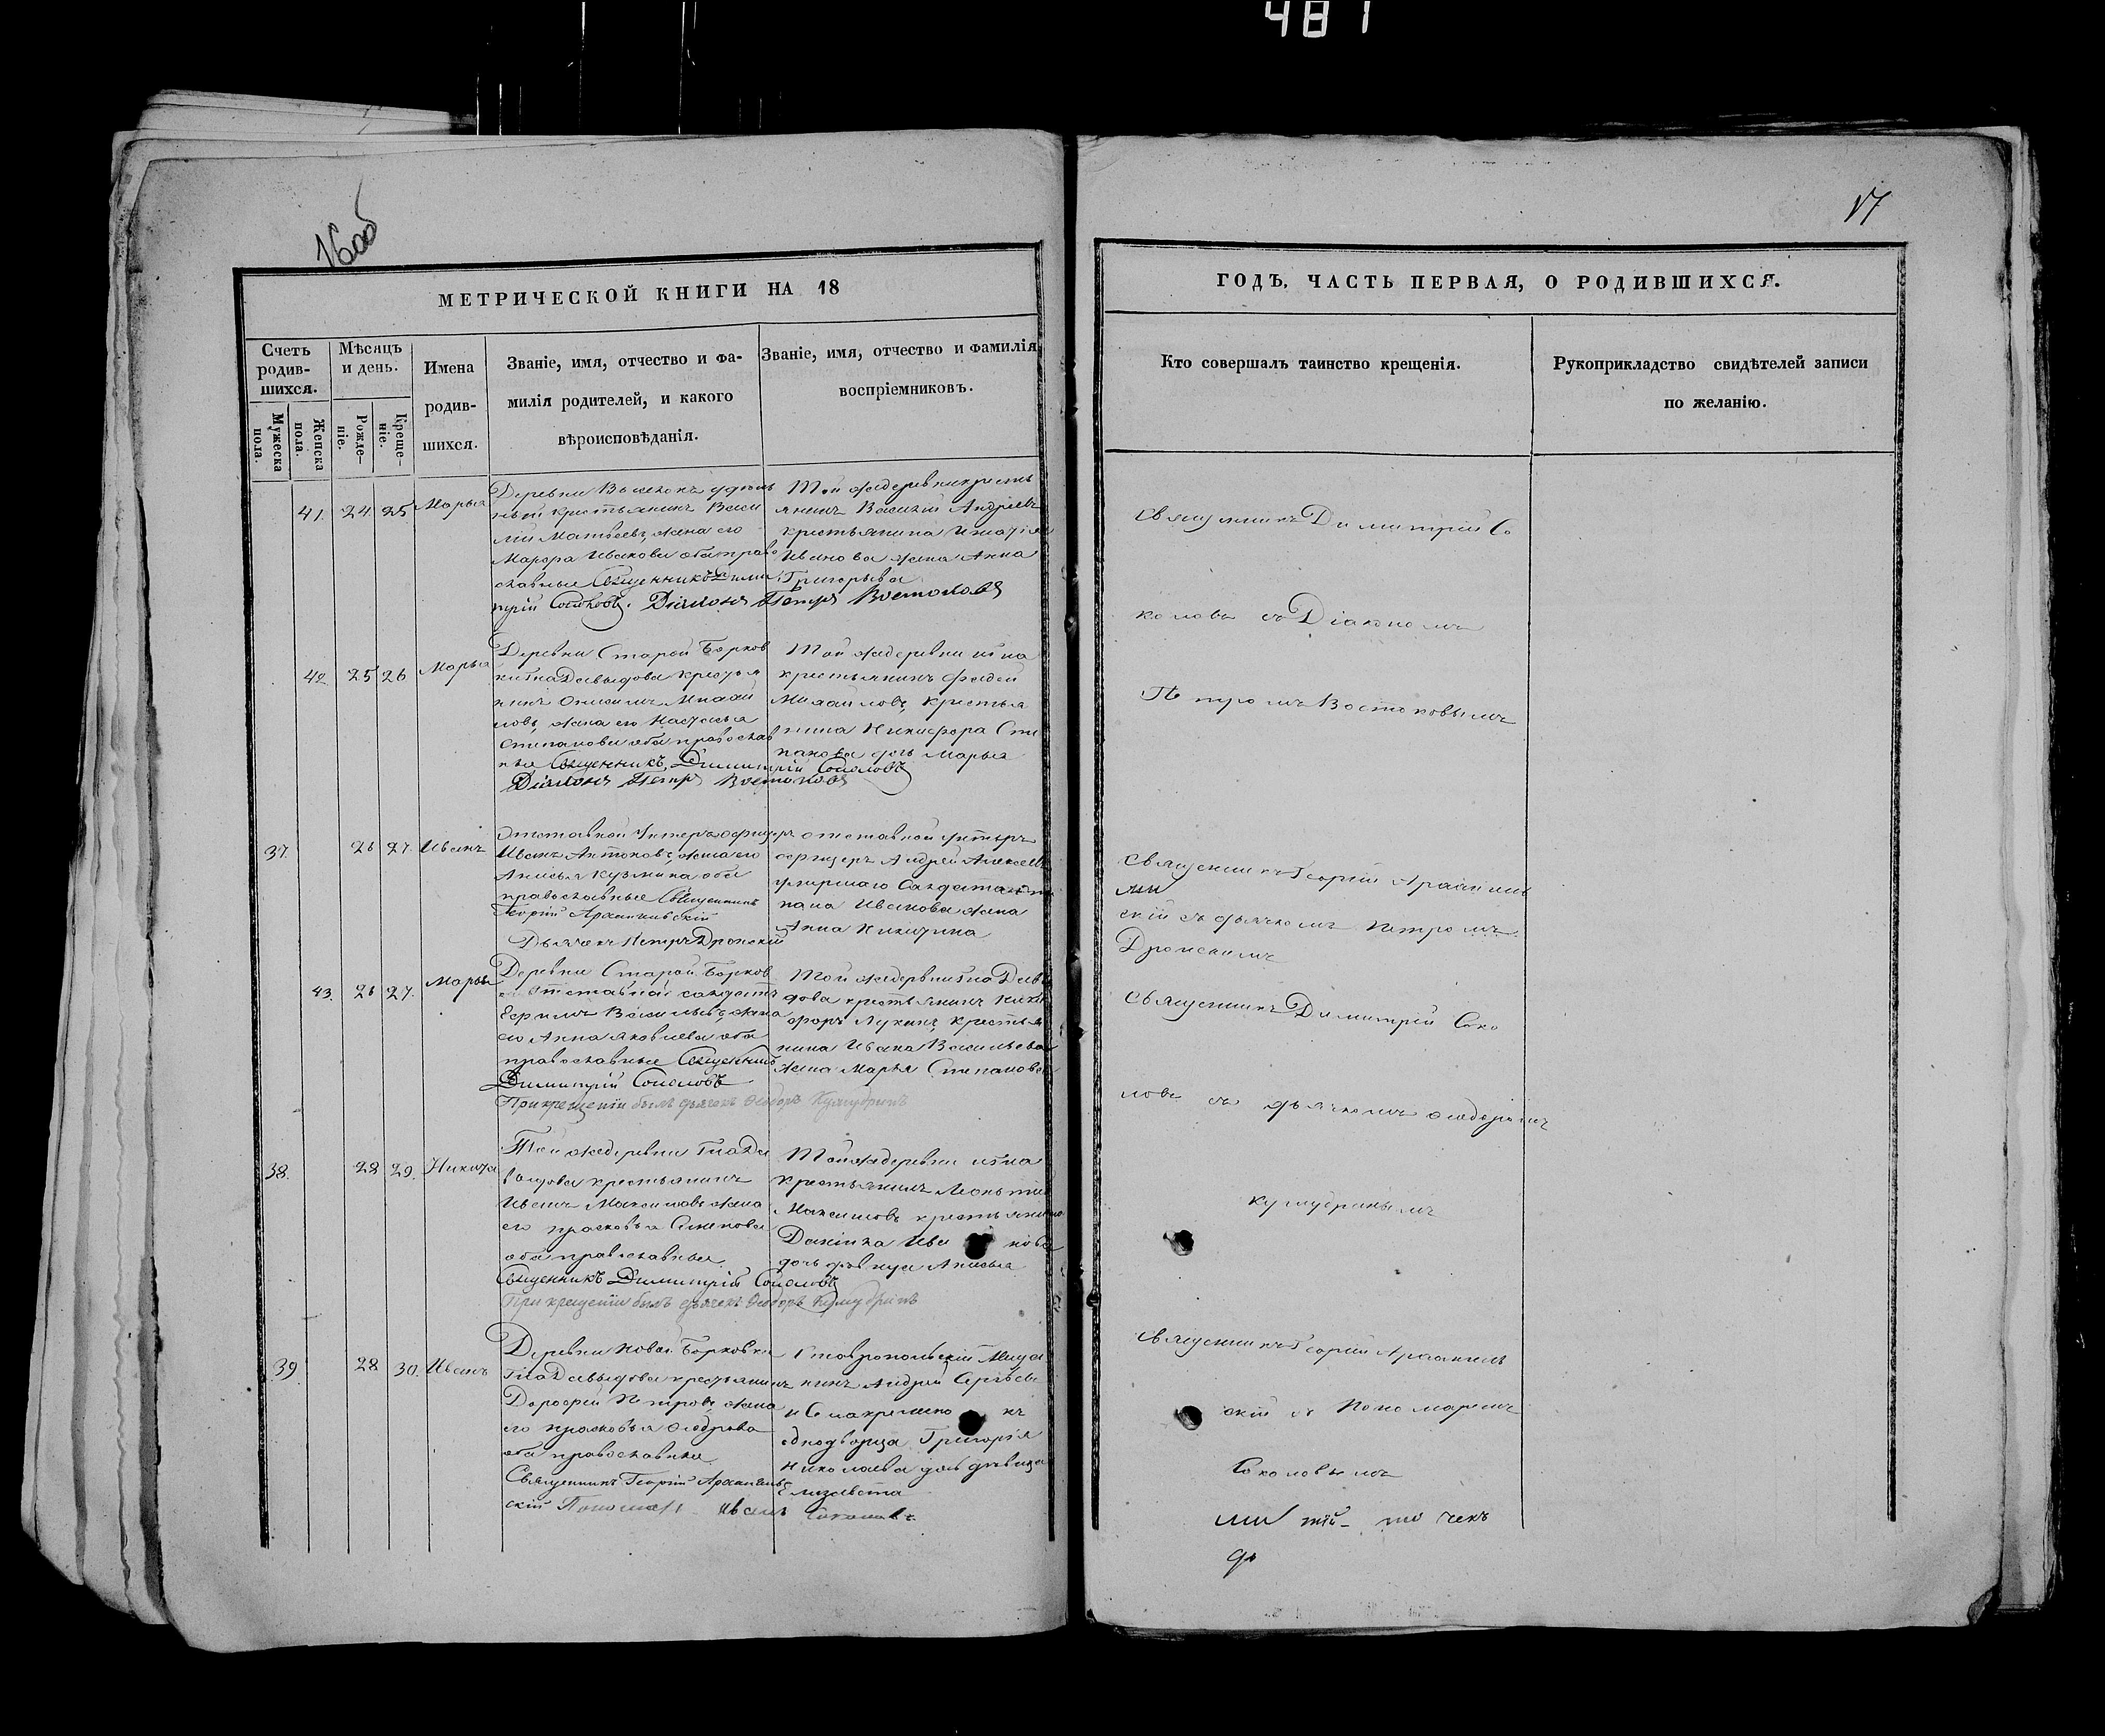 481
16об
17
МЕТРИЧЕСКОЙ КНИГИ НА 18
ГОДЪ, ЧАСТЬ ПЕРВАЯ, О РОДИВШИХСЯ.
Счетъ родив-шихся.
Мужеска пола.
Женска пола.
Мѣсяцъ и день.
Рожде-ніе.
Креще-ніе.
Имена родив-шихся.
Званіе, имя, отчество и фа-
милія родителей, и какого
вѣроисповѣданія.
Званіе, имя, отчество и фамилія
воспріемниковъ.
Кто совершалъ таинство крещенія.
Рукоприкладство свидѣтелей записи
по желанію.
41. 24 25 Марья
Деревни удѣль
ный крестьянинъ Васи
лій Матвеевъ, жена его
Иванова оба право
славные Священникъ Дими
трій Соколовъ. Діаконъ Петръ Востоковъ
Той же деревни кресть
янинъ Василій Андреевъ
крестьянина Игнатія
Иванова жена Анна
Григорьева
Священникъ Димитрій Со
коловъ съ Діакономъ
Петромъ Востоковымъ
42 25 26 Марья
Деревни Старой Борков
ки Гна Давыдова крестья
нинъ Михай
ловъ, жена его Настасья
Степанова оба православ
ные Священникъ Димитрій Соколовъ
Діаконъ Петръ Востоковъ
Той же деревни и Гна
крестьянинъ Фадей
Михайловъ, крестья
нина Никифора Сте
панова дочь Марья
37. 26 27. Иванъ
Отставной Унтеръ офицеръ
Иванъ Антоновъ, жена его
Анисья Кузмина оба
православные Священникъ
Георгій Архангельскій
Дьячекъ Петръ Дронскій
отставной унтеръ
офицеръ Андрей Алексеевъ
умершаго Салдата
Иванова жена
Анна Никитина
Священникъ Георгій Архангель
скій съ дьячкомъ Петромъ
Дронскимъ
43. 26 27. Марья
Деревни Старой Борков
ки отставной салдатъ
Ефимъ Васильевъ, жена
его Анна Яковлева оба
православные Священникъ
Димитрій Соколовъ
При крещеніи былъ дьячекъ Феодоръ Кумудринъ
Той же деревни Гна Давы
дова крестьянинъ Ники
форъ Лукинъ, крестья
нина Ивана Васильева
жена Марья Степанова
Священникъ Димитрій Соко
ловъ съ дьячкомъ Феодоромъ
Кумудринымъ
38. 28 29. Никита
Той же деревни Гна Да
выдова крестьянинъ
Иванъ Максимовъ жена
его Прасковья Семенова
оба православные
Священникъ Димитрій Соколовъ
При крещеніи былъ дьячекъ Феодоръ Кумудринъ
Той же деревни и Гна
крестьянинъ Леонтій
Максимовъ крестьянина
Данила Ива нова
дочь девица Анисья
39 28 30. Иванъ
Деревни Новой Борковки
Гна Давыдова крестьянинъ
Дорофей Петровъ, жена
его Прасковья Феодорова
оба православные
Священникъ Георгій Архангель
скій Пономарь Иванъ Соколовъ
Ставропольскій Меща
нинъ Андрей Сергѣевъ
однодворца Григорія
Николаева дочь девица
Елизавета
Священникъ Георгій Архангель
скій съ Пономаремъ
Соколовымъ